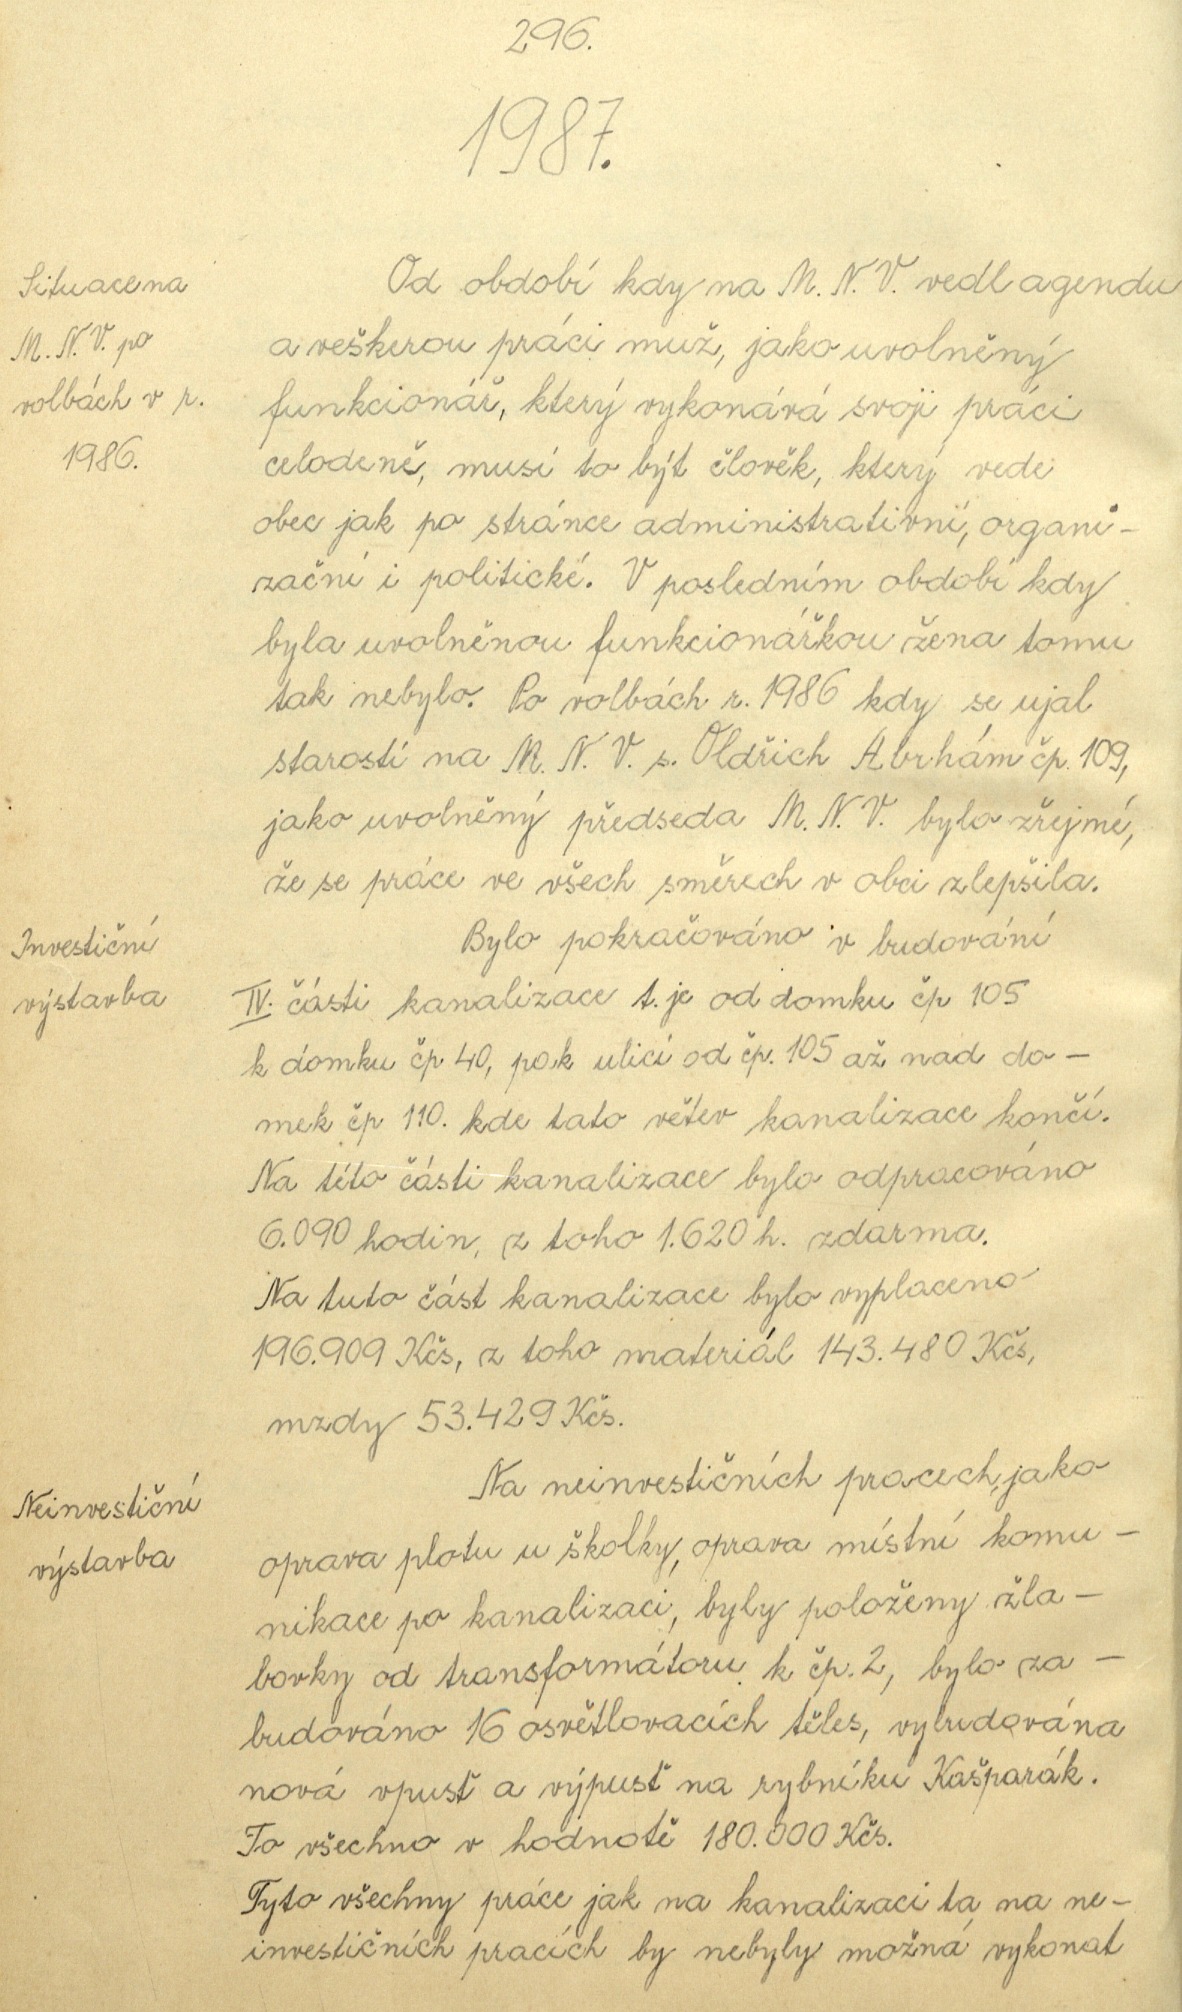 296.
1987.
Situace na
M. N. V. po
volbách v r.
1986.
Od období kdy na M. N. V. vedl agendu
a veškerou práci muž, jako uvolněný
funkcionář, který vykonává svoji práci
celodeně, musí to být člověk, který vede
obec jak po stránce administrativní, organi-
zační i politické. V posledním období kdy
byla uvolněnou funkcionářkou žena tomu
tak nebylo. Po volbách r. 1986 kdy se ujal
starostí na M. N. V. s. Oldřich Abrhám čp. 109,
jako uvolněný předseda M. N. V. bylo zřejmé,
že se práce ve všech směrech v obci zlepšila.
Investiční
výstavba
Bylo pokračováno v budování
IV. části kanalizace t. je od domku čp 105
k domku čp 40, pok ulicí od čp. 105 až nad do-
mek čp 110. kde tato větev kanalizace končí.
Na této části kanalizace bylo odpracováno
6.090 hodin, z toho 1.620 h. zdarma.
Na tuto část kanalizace bylo vyplaceno
196.909 Kčs, z toho materiál 143.480 Kčs,
mzdy 53.429 Kčs.
Neinvestiční
výstavba
Na neinvestičních pracech, jako
oprava plotu u školky, oprava místní komu-
nikace po kanalizaci, byly položeny žla-
bovky od transformátoru k čp. 2, bylo za-
budováno 16 osvětlovacích těles, vybudována
nová vpusť a výpusť na rybníku Kašparák.
To všechno v hodnotě 180.000 Kčs.
Tyto všechny práce jak na kanalizaci ta na ne-
investičních pracích by nebyly možná vykonat